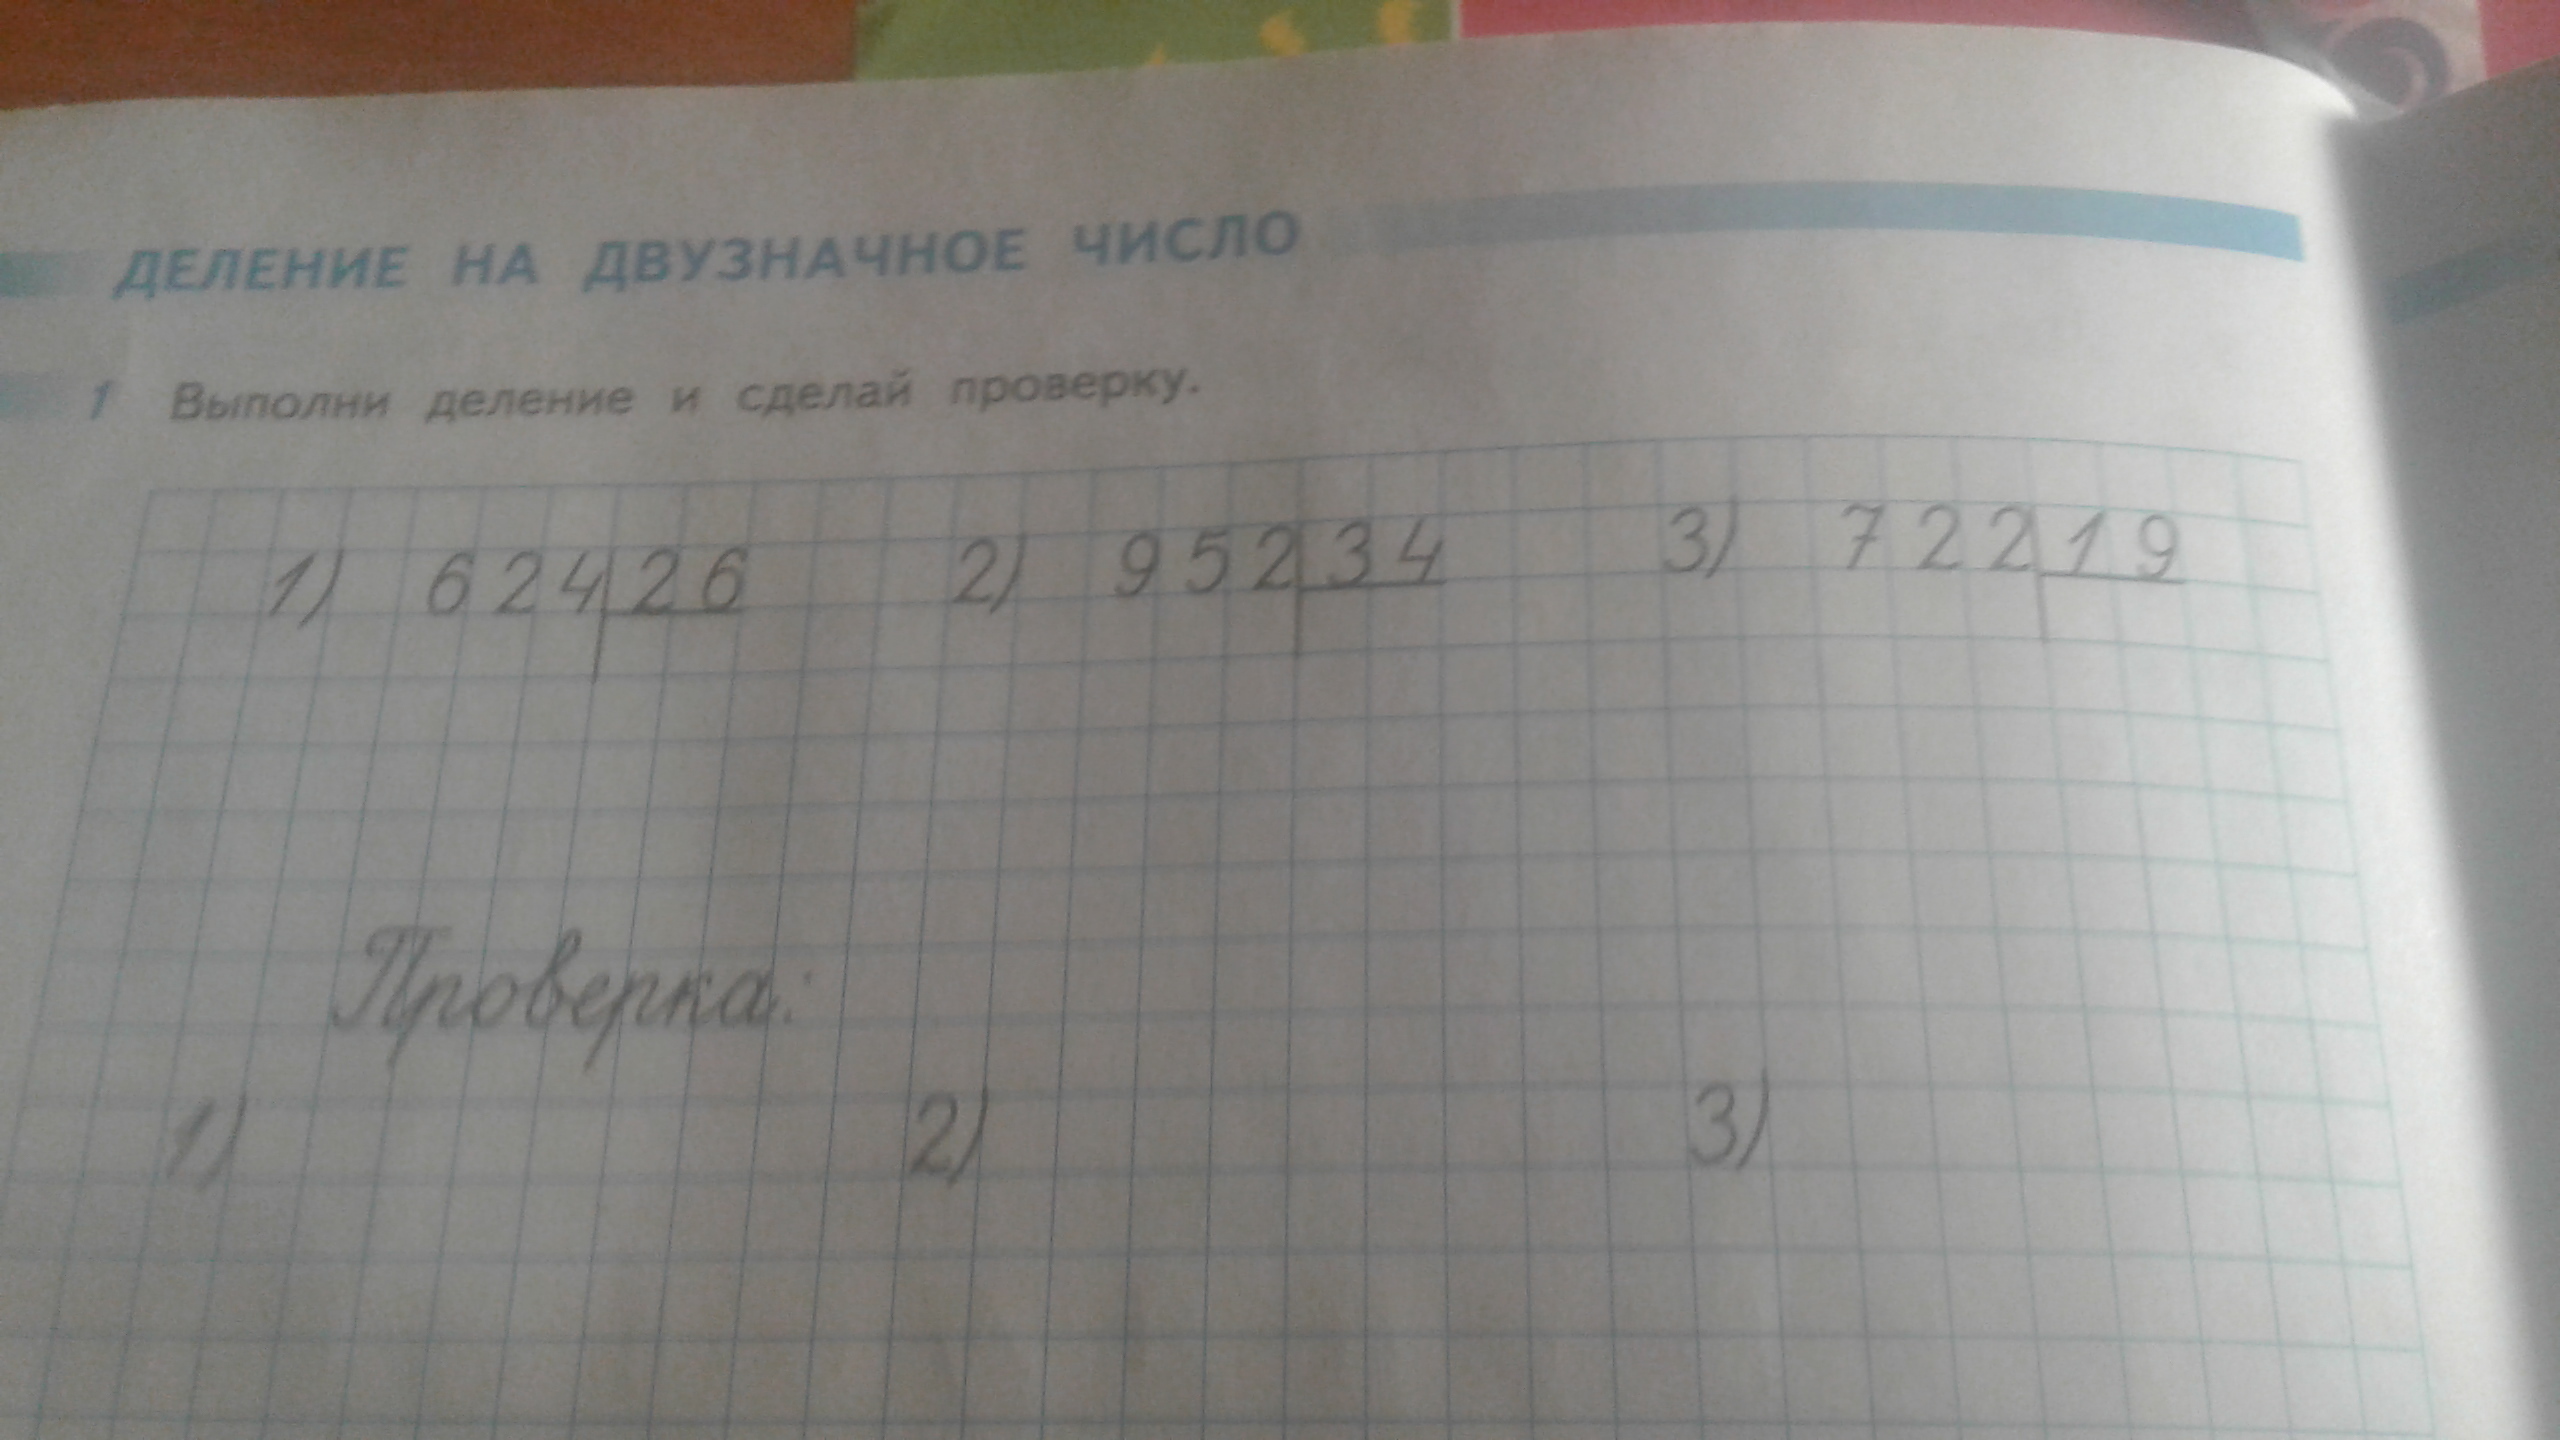 ДЕЛЕНИЕ НА ДВУЗНАЧНОЕ ЧИСЛО
1 Выполни деление и сделай проверку.
1) 624 26 2) 952 34 3) 722 19
Проверка:
1) 2) 3)